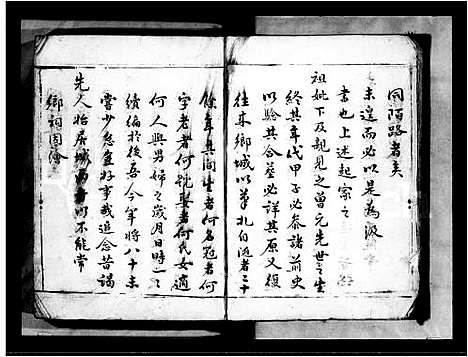 同陌路者矣
未遑而必以是為汲
書也上述起家之
祖妣下及親見之曾元先世之生
終其年代甲子必泰諸前史
以驗其合墓必詳其原又復
往來鄉城以筆札自隨者三十
餘年其間生者何名冠者何
字老者何號娶者何氏女適
何人與男婦之歲月日時一一
續編於後吾今年將八十未
嘗少怠盛好事哉追念昔謁
先人怡居城而不能常
鄉祠因